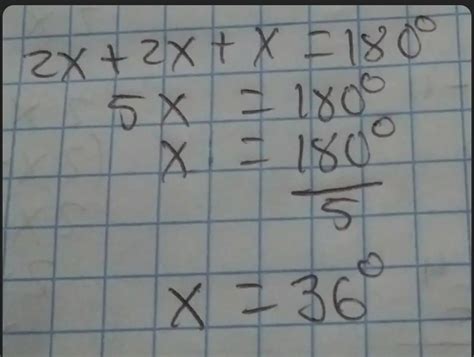 2x + 2x + x = 180°
5x = 180°
x = 180°
5
x = 36°